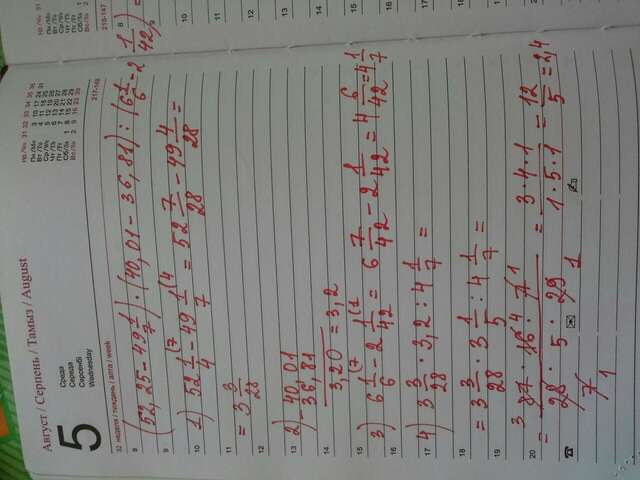 Август / Серпень / Тамыз / August
5
Среда
Середа
Сәрсенбі
Wednesday
32 неделя / тиждень / апта / week
217-148
218-147
(52,25 - 49 1/7) · (40,01 - 36,81) : (6 1/6 - 2 1/42) =
1) 52 1/4 (7 - 49 1/7 (4 = 52 7/28 - 49 4/28 =
= 3 3/28
2) - 40,01
36,81
3,20 = 3,2
3) 6 1/6 (7 - 2 1/42 (1 = 6 7/42 - 2 1/42 = 4 6/42 = 4 1/7
4) 3 3/28 · 3,2 : 4 1/7 =
= 3 3/28 · 3 1/5 : 4 1/7 =
= 87 · 16 · 7 / 28 · 5 · 29 = 3·4·1 / 1·5·1 = 12/5 = 2,4